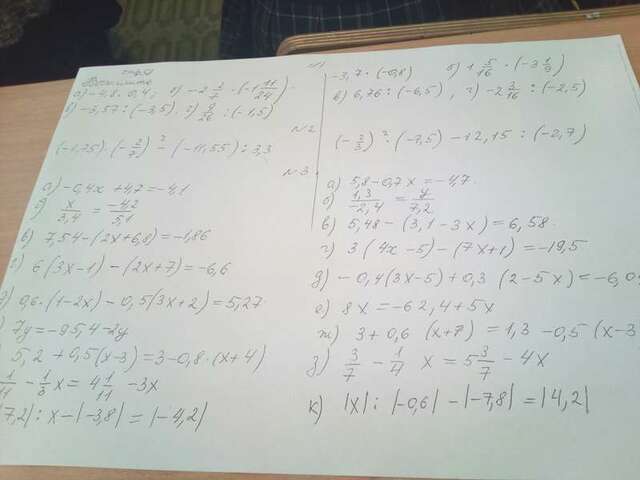 Вычислите
а) -4,8 · 0,4; б) -2 · (-1 11/24)
в) -3,57 : (-3,5). г) 9/26 : (-1,5)
№2
(-1,75) · (-2/7)² - (-11,55) : 3,3
№3
а) -0,4x + 4,7 = -4,1
б) x/3,4 = -4,2/5,1
в) 7,54 - (2x + 6,8) = -1,86
6(3x - 1) - (2x + 7) = -6,6
0,6 · (1 - 2x) - 0,5(3x + 2) = 5,27
7y = -95,4 - 2y
5,2 + 0,5(x - 3) = 3 - 0,8 · (x + 4)
1/11 - 1/3 x = 4 1/11 - 3x
7,2| : x - |-3,8| = |-4,2|
-3,7 · (-0,8) б) 1 5/16 · (-3 1/9)
в) 6,76 : (-6,5), г) -2 3/16 : (-2,5)
(-2/3)² : (-7,5) - 12,15 : (-2,7)
а) 5,8 - 0,7x = -4,7.
б) 1,3/-2,4 = y/7,2
в) 5,48 - (3,1 - 3x) = 6,58.
г) 3(4x - 5) - (7x + 1) = -19,5
д) -0,4(3x - 5) + 0,3 (2 - 5x) = -6,0
е) 8x = -62,4 + 5x
ж) 3 + 0,6 (x + 7) = 1,3 - 0,5(x - 3
з) 3/7 - 1/4 x = 5 3/7 - 4x
к) |x| : |-0,6| - |-7,8| = |4,2|